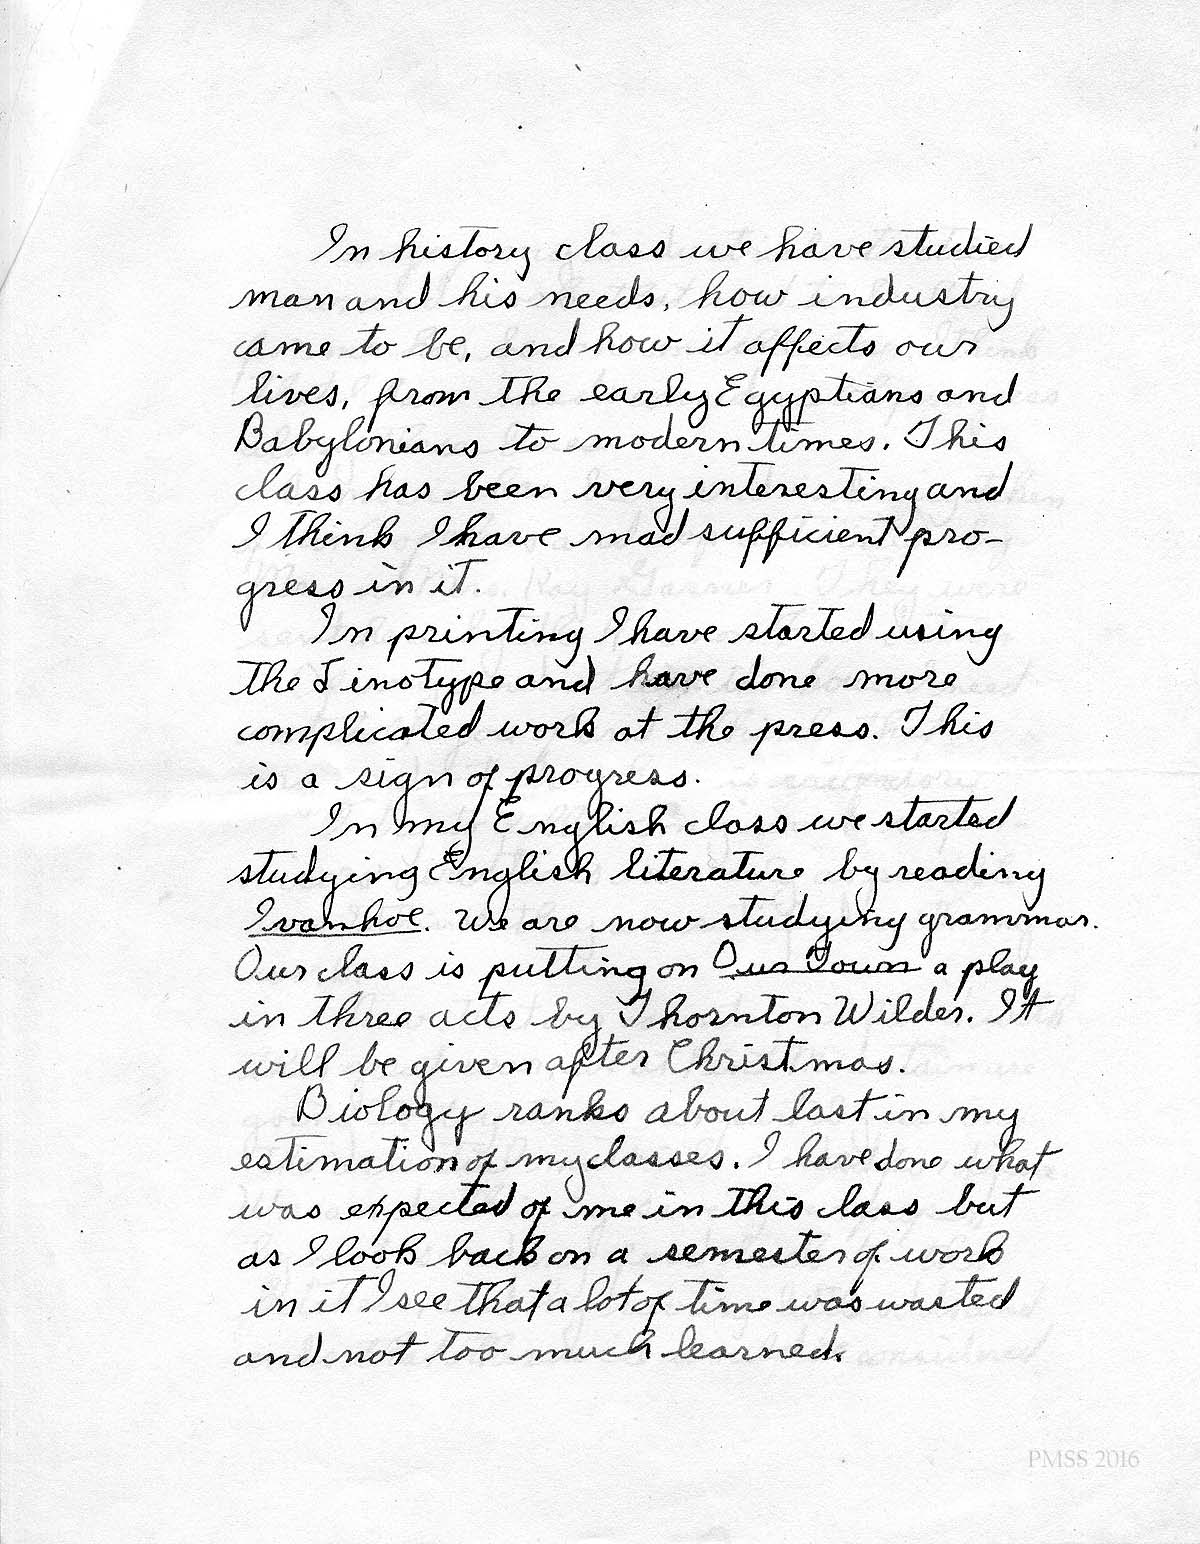 In history class we have studied
man and his needs, how industry
came to be, and how it affects our
lives, from the early Egyptians and
Babylonians to modern times. This
class has been very interesting and
I think I have mad sufficient pro-
gress in it.
In printing I have started using
the Linotype and have done more
complicated work at the press. This
is a sign of progress.
In my English class we started
studying English literature by reading
Ivanhoe. We are now studying grammar.
Our class is putting on Our Town a play
in three acts by Thornton Wilder. It
will be given after Christmas.
Biology ranks about last in my
estimation of my classes. I have done what
was expected of me in this class but
as I look back on a semester of work
in it I see that a lot of time was wasted
and not too much learned.
PMSS 2016